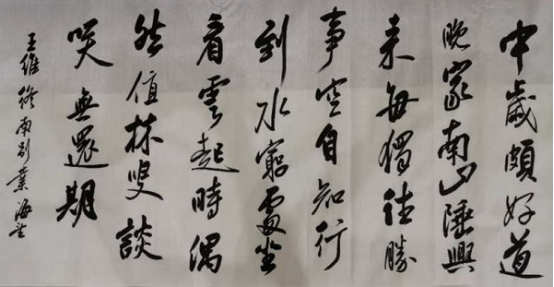 中歲頗好道
晚家南山陲興
来每獨往勝
事空自知行
到水窮處坐
看雲起時偶
然值林叟談
咲無還期
王維終南別業海